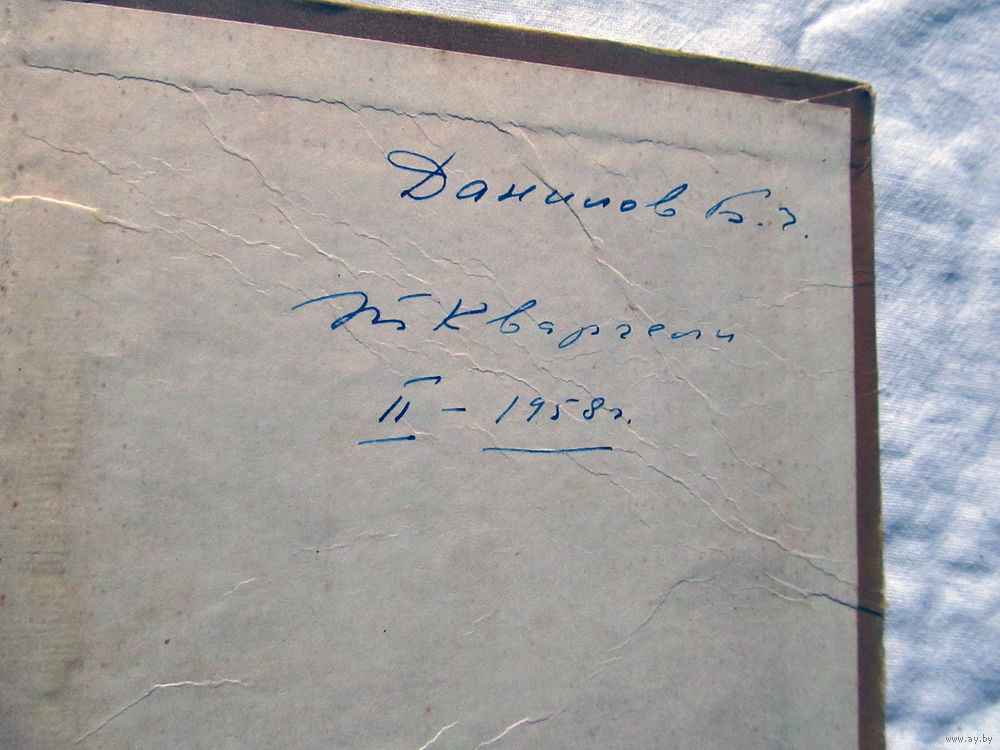 Данилов Б.Г.
Ткварчели
II - 1958г.
www.ay.by